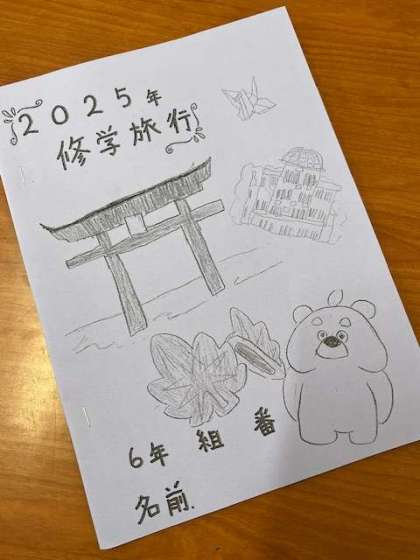 ２０２５年
修学旅行
６年 組 番
名前